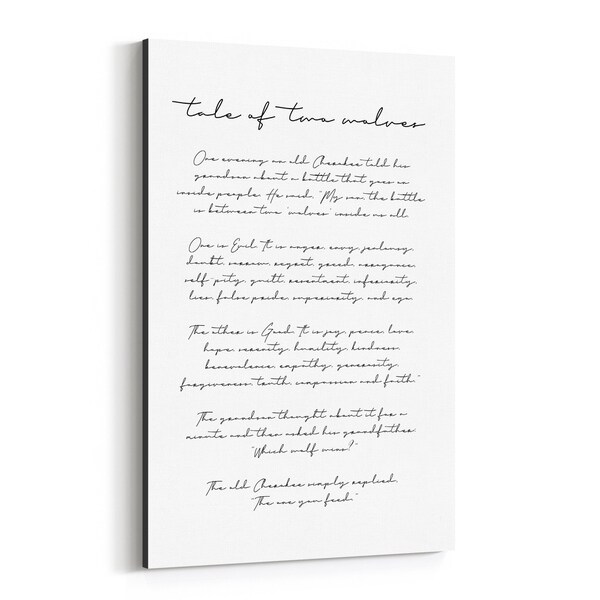 tale of two wolves
One evening an old Cherokee told his
grandson about a battle that goes on
inside people. He said, "My son, the battle
is between two 'wolves' inside us all.
One is Evil. It is anger, envy, jealousy,
doubt, sorrow, regret, greed, arrogance,
self-pity, guilt, resentment, inferiority,
lies, false pride, superiority, and ego.
The other is Good. It is joy, peace, love,
hope, serenity, humility, kindness,
benevolence, empathy, generosity,
forgiveness, truth, compassion and faith."
The grandson thought about it for a
minute and then asked his grandfather
"Which wolf wins?"
The old Cherokee simply replied,
"The one you feed."